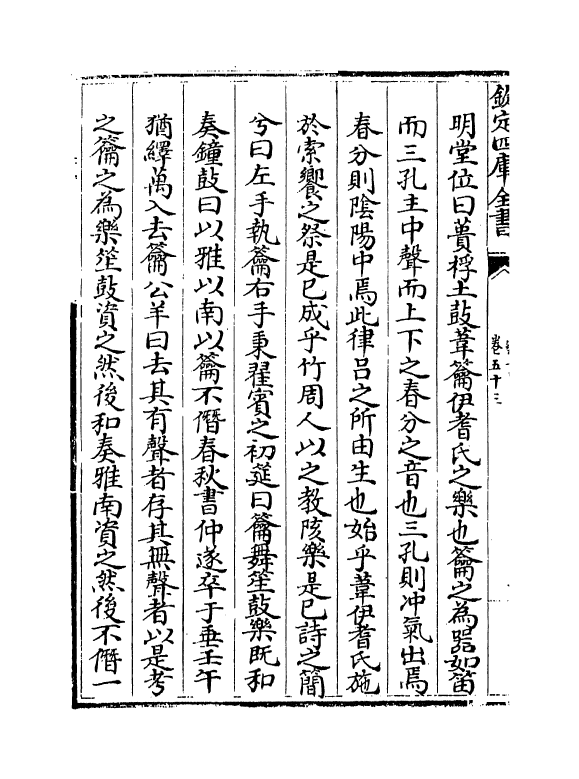 欽定四庫全書
卷五十三
明堂位曰蕢桴土鼓葦籥伊耆氏之樂也籥之為器如笛
而三孔主中聲而上下之春分之音也三孔則冲氣出焉
春分則隂陽中焉此律吕之所由生也始乎葦伊耆氏施
於索饗之祭是已成乎竹周人以之教陔樂是已詩之簡
兮曰左手執籥右手秉翟賓之初筵曰籥舞笙鼓樂既和
奏鐘鼓曰以雅以南以籥不僭春秋書仲遂卒于垂壬午
猶繹萬入去籥公羊曰去其有聲者存其無聲者以是考
之籥之為樂笙鼓資之然後和奏雅南資之然後不僭一